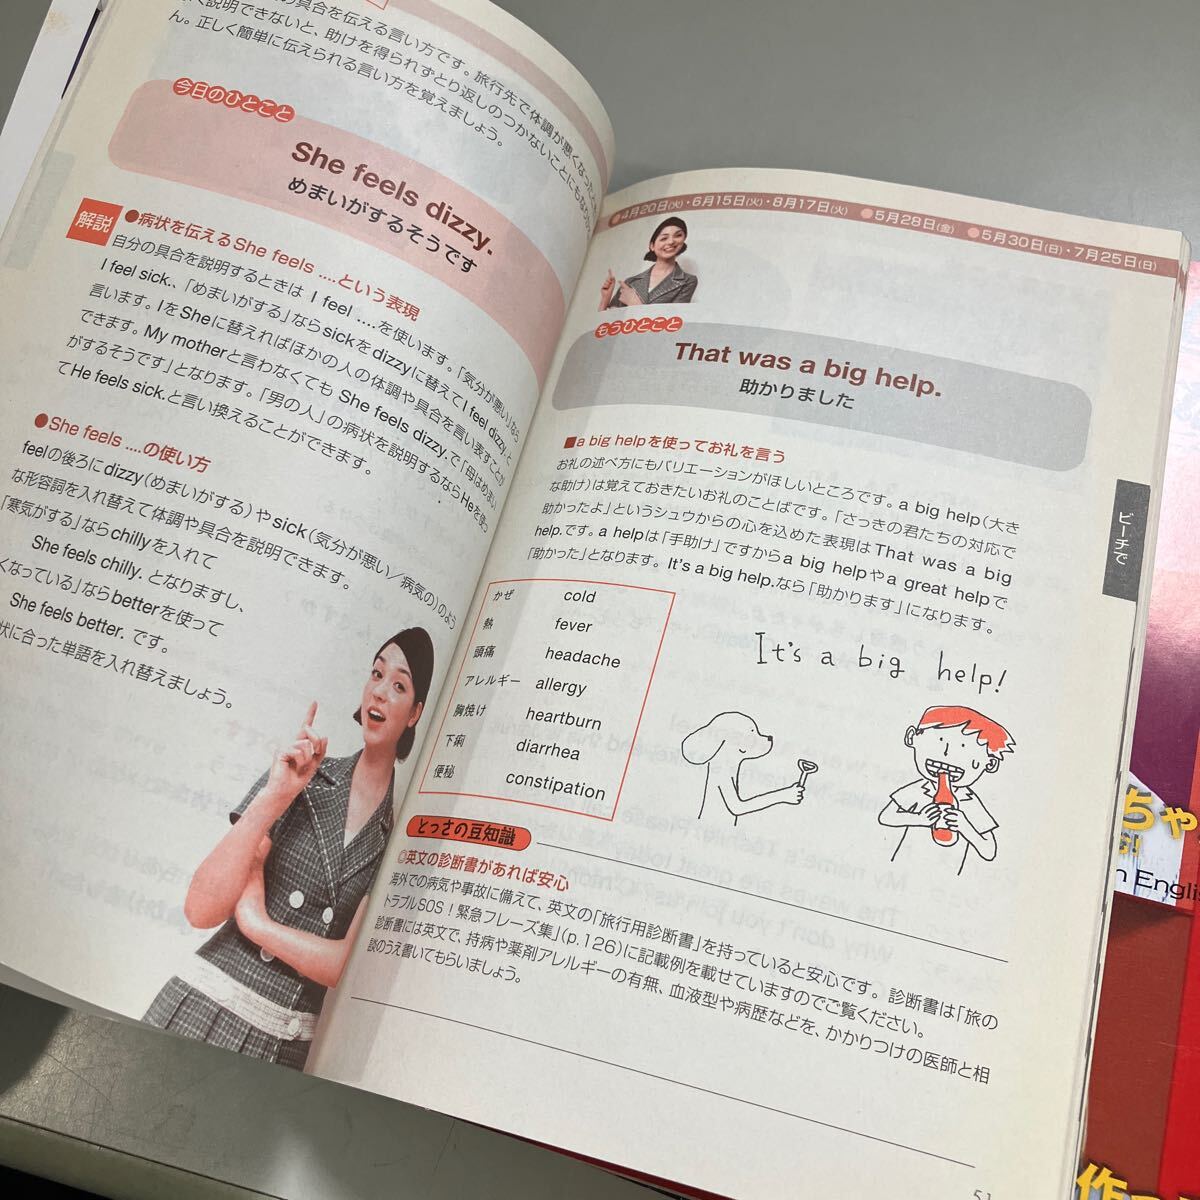 の具合を伝える言い方です。旅行先で体調が悪くなったとき
く説明できないと、助けを得られずとり返しのつかないことにもなりか
ん。正しく簡単に伝えられる言い方を覚えましょう。
今日のひとこと
She feels dizzy.
めまいがするそうです
解説
●病状を伝えるShe feels ....という表現
自分の具合を説明するときは I feel ....を使います。「気分が悪い」なら
I feel sick.、「めまいがする」ならsickをdizzyに替えてI feel dizzy.と
言います。IをSheに替えればほかの人の体調や具合を言い表すことが
できます。My motherと言わなくても She feels dizzy.で「母はめまい
がするそうです」となります。「男の人」の病状を説明するならHeを使っ
てHe feels sick.と言い換えることができます。
●She feels ....の使い方
feelの後ろにdizzy(めまいがする)やsick(気分が悪い/病気の)のよう
な形容詞を入れ替えて体調や具合を説明できます。
「寒気がする」ならchillyを入れて
She feels chilly. となりますし、
くなっている」ならbetterを使って
She feels better. です。
状に合った単語を入れ替えましょう。
●4月20日(火)・6月15日(火)・8月17日(火) ●5月28日(金) ●5月30日(日)・7月25日(日)
もうひとこと
That was a big help.
助かりました
■a big helpを使ってお礼を言う
お礼の述べ方にもバリエーションがほしいところです。a big help(大き
な助け)は覚えておきたいお礼のことばです。「さっきの君たちの対応で
助かったよ」というシュウからの心を込めた表現は That was a big
help.です。a helpは「手助け」ですからa big helpやa great helpで
「助かった」となります。It's a big help.なら「助かります」になります。
かぜ cold
熱 fever
頭痛 headache
アレルギー allergy
胸焼け heartburn
下痢 diarrhea
便秘 constipation
It's a big help!
とっさの豆知識
◎英文の診断書があれば安心
海外での病気や事故に備えて、英文の「旅行用診断書」を持っていると安心です。診断書は「旅の
トラブルSOS！緊急フレーズ集」(p.126)に記載例を載せていますのでご覧ください。
診断書には英文で、持病や薬剤アレルギーの有無、血液型や病歴などを、かかりつけの医師と相
談のうえ書いてもらいましょう。
ビーチで
51
ちゃ
n Englis
作っ